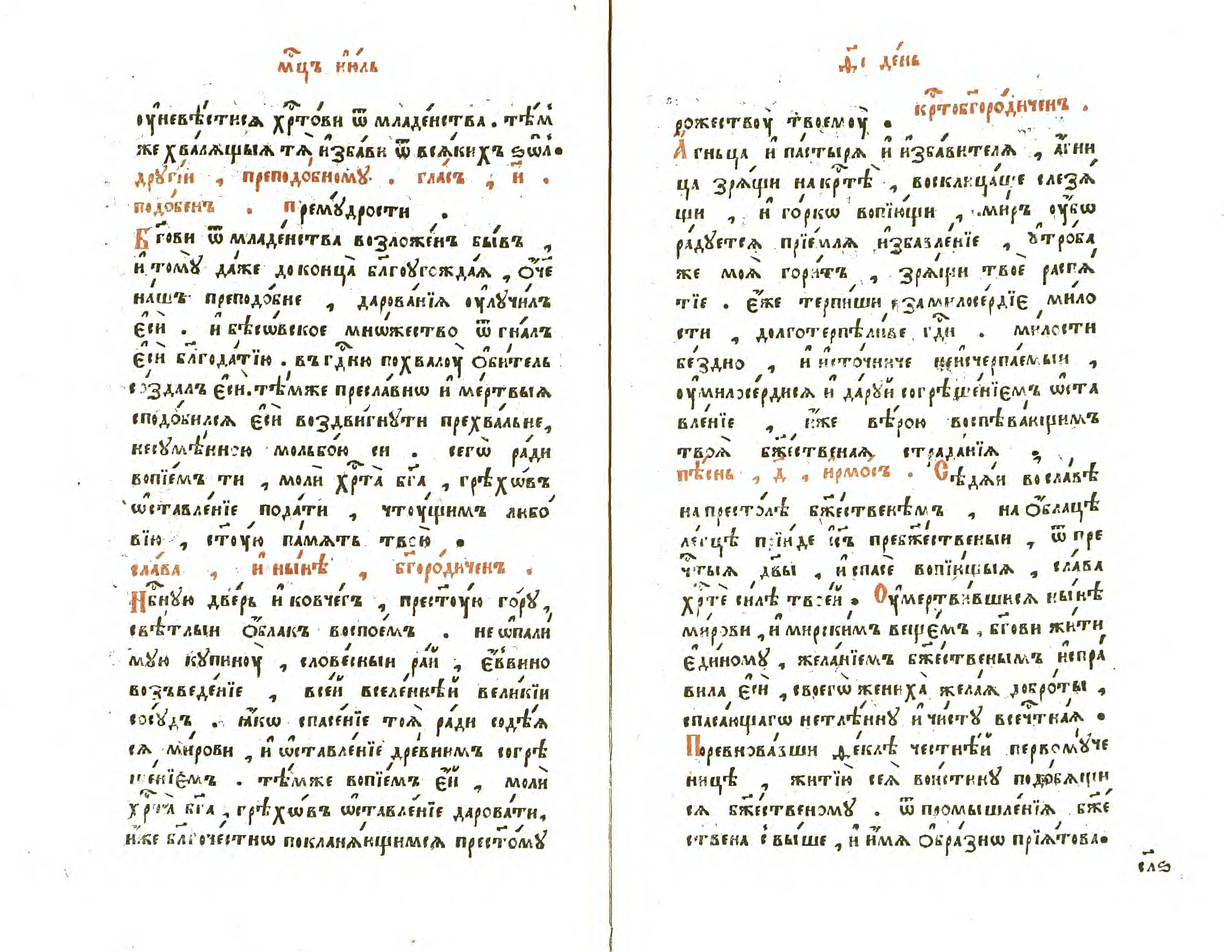 мⷭ҇цъ і҆ю́ль
оу҆невѣ́стися хрⷭ҇то́ви ѿ младе́нства . тѣ́м
же хваля́щыя тѧ̀ и҆зба́ви ѿ вся́кихъ ѕѡ́л .
дрꙋгі́й , преподо́бномꙋ . гла́съ , и҃ .
подо́бенъ . премꙋ́дрости .
Бг҃ови ѿ младе́нства возложе́нъ бы́въ ,
и҆ томꙋ̀ да́же до конца̀ бл҃гоꙋгожда́я , ѻ҆́ч҃е
на́шъ преподо́бне , дарова́нїя оу҆лꙋчи́лъ
є҆сѝ . и҆ бѣсѡ́вское мно́жество ѿгна́лъ
є҆сѝ бл҃года́тїю . въ гдⷭ҇ню похвалоу̀ ѻ҆би́тель
созда́лъ є҆сѝ . тѣ́мже пресла́внѡ и҆ ме́ртвыя
сподо́бился є҆сѝ воздви́гнꙋти прехва́льне,
несꙋмѣ́нною мольбо́ю си . сегѡ̀ ра́ди
вопїе́мъ ти , молѝ хрⷭ҇та̀ бг҃а , грѣхѡ́въ
ѡ҆ставле́нїе пода́ти , чтоу́щимъ любо́
вїю , ст҃оую па́мять твою̀ .
сла́ва , и҆ ны́нѣ , бг҃оро́диченъ .
Нбⷭ҇нꙋю две́рь и҆ ковче́гъ , прест҃оую го́рꙋ ,
свѣ́тлыи ѻ҆́блак воспое́мъ . не ѡ҆пали́
мꙋю кꙋпиноу̀ , слове́сныи ра́й , є҆́ввино
возъведе́нїе , все́й вселе́ннѣй вели́кїи
сосꙋ́дъ . ꙗ҆́кѡ спасе́нїе тоя̀ ра́ди содѣ́я
ся ми́рови , и҆ ѡ҆ставле́нїе дре́внимъ согрѣ
ше́нїємъ . тѣ́мже вопїе́мъ є҆́й , молѝ
хрⷭ҇та̀ бг҃а , грѣхѡ́въ ѡ҆ставле́нїе дарова́ти,
и҆̀же бл҃гоче́стнѡ покланя́ющимся прест҃о́мꙋ
д҃і де́нь
рожествоу̀ твоемоу̀ . крⷭ҇тобг҃оро́диченъ .
А҆́гньца и҆ па́стыря и҆ и҆зба́вителя , а҆́гни
ца зря́щи на крⷭ҇тѣ̀ , восклица́ше слезя́
щи , и҆ го́ркѡ вопїю́щи , ми́ръ оу҆́бѡ
ра́дꙋется прїе́мля и҆збавле́нїе , ꙋ҆тро́ба
же моя̀ гори́тъ , зря́щи твоѐ распя́
тїе . є҆́же терпи́ши за милосе́рдїе мило
сти , долготерпѣли́ве гдⷭ҇и . ми́лости
бе́здно , и҆ и҆сто́чниче неисчерпа́емыи ,
оу҆милосе́рдися и҆ да́рꙋй согрѣше́нїємъ ѡ҆ста
вле́нїе , и҆̀же вѣ́рою воспѣва́ющимъ
твоя̀ бжⷭ҇ественая страда́нїя .
пѣ́снь , д҃ , и҆рмо́съ . Сѣдя́и во сла́вѣ
на престо́лѣ бжⷭ҇ественѣмъ , на ѻ҆́блацѣ
ле́гцѣ прїи́де і҆с҃ъ пребжⷭ҇ественыи , ѿ пре
чⷭ҇тыя дв҃ы , и҆ спасѐ вопїю́щыя , сла́ва
хрⷭ҇тѐ си́лѣ твое́й . Оу҆мертви́вшися ны́нѣ
ми́рови , и҆ мирски́мъ веще́мъ , бг҃ови жи́ти
є҆ди́номꙋ , жела́нїемъ бжⷭ҇ественымъ и҆спра́
вила є҆сѝ , своегѡ̀ жениха̀ жела́я добро́ты ,
спаса́ющагѡ нетлѣ́ннꙋ и҆ чи́стꙋ всечⷭ҇тна́я .
Поревнова́вши ѳе́клѣ честнѣ́й первомꙋ́че
ницѣ , житїю̀ сея̀ вои́стинꙋ подо́бящи
ся бжⷭ҇ественомꙋ . ѿ промышле́нїя бжⷭ҇е́
ствена свы́ше , и҆ и҆́мя ѻ҆бра́знѡ прїя́това .
сл҃ѕ